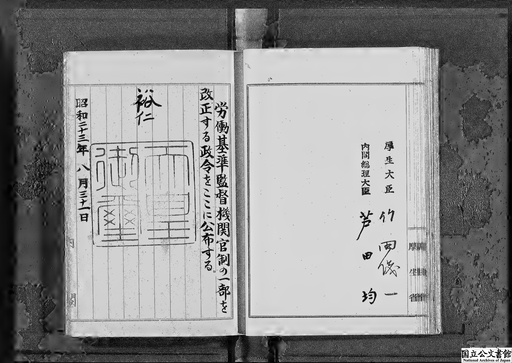 厚生大臣 竹田儀一
内閣総理大臣 芦田均
労働基準監督機関官制の一部を
改正する政令をここに公布する。
裕仁
天皇
御璽
昭和二十三年八月三十一日
国立公文書館
National Archives of Japan